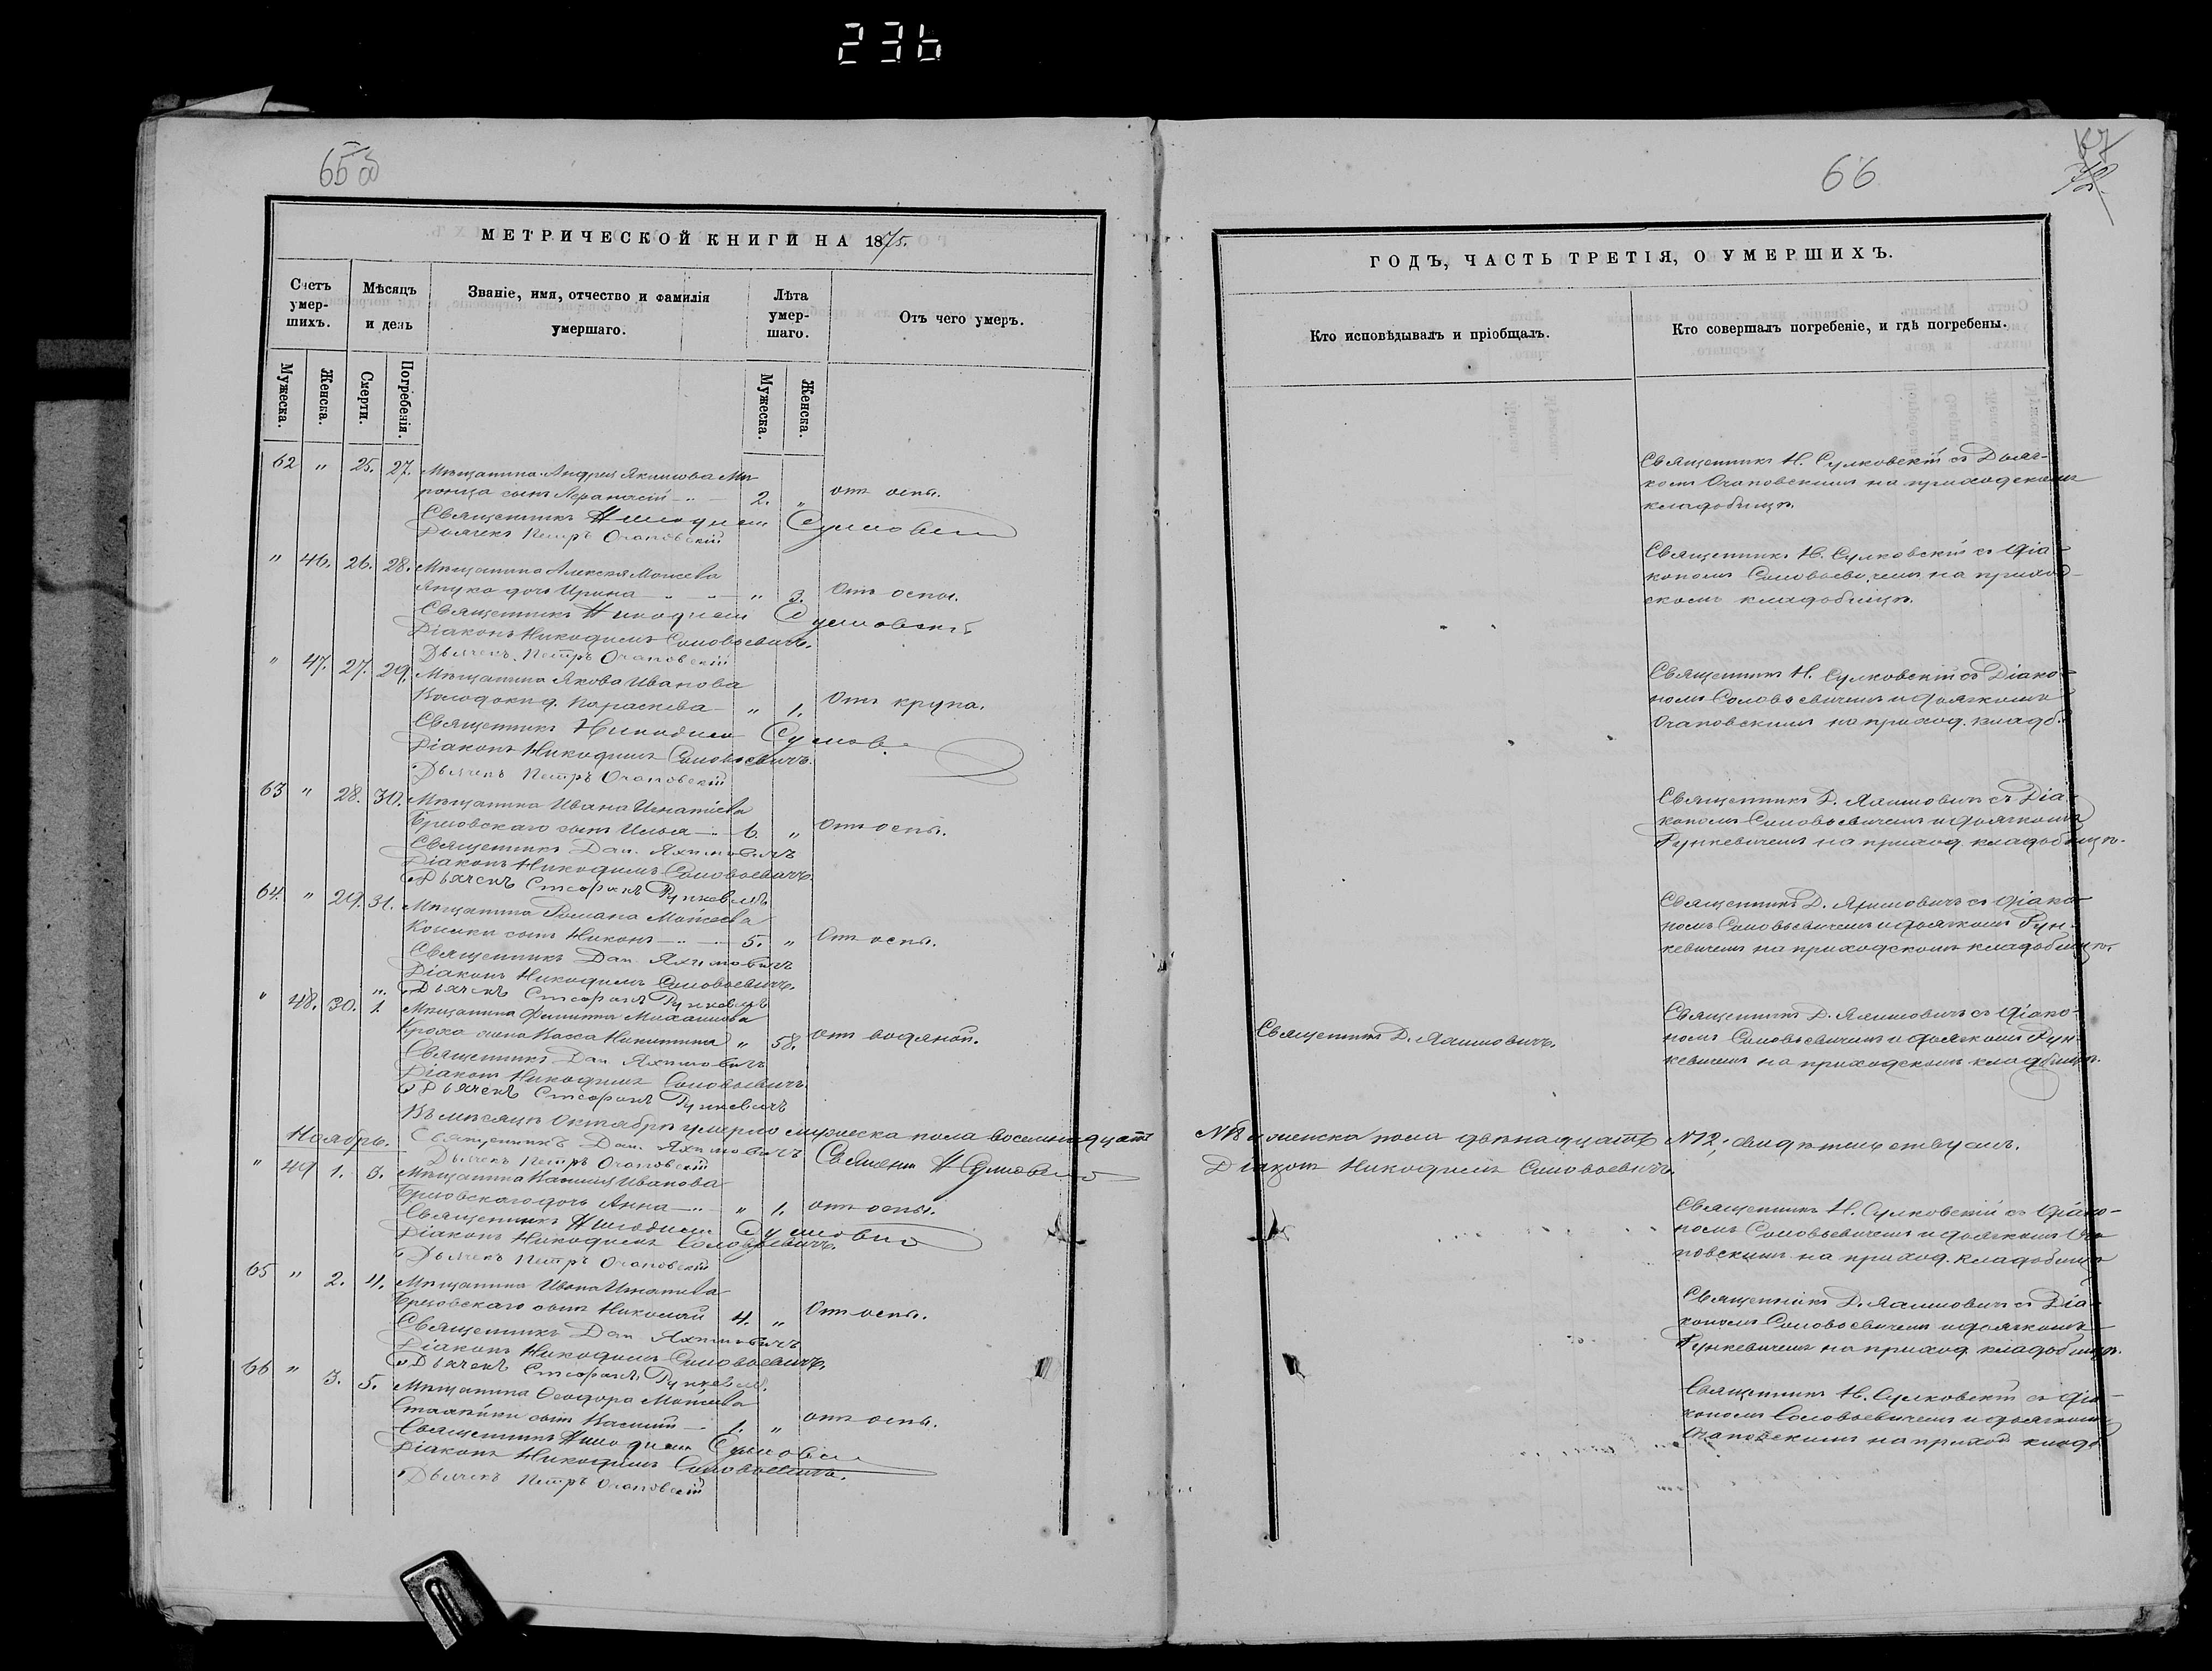 236
65 об
66
67
72
МЕТРИЧЕСКОЙ КНИГИ НА 1875.
Счетъ умер-шихъ.
Мѣсяцъ и день
Званіе, имя, отчество и фамилія умершаго.
Лѣта умер-шаго.
Отъ чего умеръ.
Мужеска.
Женска.
Смерти.
Погребенія.
Мужеска.
Женска.
62 " 25. 27. Мѣщанина Андрея Якимова Ми-
сынъ Афанасій 2. " отъ оспы.
Священникъ Никодим Сулковскій
Дьячекъ Петръ Очаповскій
" 46. 26. 28. Мѣщанина Алексѣя Моисеева
дочь Ирина " 3. Отъ оспы.
Священникъ Никодим Сулковскій
Діаконъ Никодимъ Соловьевичъ.
Дьячекъ Петръ Очаповскій
" 47. 27. 29. Мѣщанина Якова Иванова
д. Параскева " 1. Отъ крупа.
Священникъ Никодим Сулков
Діаконъ Никодимъ Соловьевичъ.
Дьячекъ Петръ Очаповскій
63 " 28. 30. Мѣщанина Ивана Игнатіева
сынъ Илья 6. " Отъ оспы.
Священникъ Дан. Яхимовичъ
Діаконъ Никодимъ Соловьевичъ.
Дьячекъ Стефанъ Рункевичъ
64. " 29. 31. Мѣщанина Романа Моисеева
сынъ Никонъ 5. " Отъ оспы.
Священникъ Дан. Яхимовичъ
Діаконъ Никодимъ Соловьевичъ.
Дьячекъ Стефанъ Рункевичъ
" 48. 30. 1. Мѣщанина Филиппа Михайлова
жена Васса Никитина " 58. Отъ водяной.
Священникъ Дан Яхимовичъ
Діаконъ Никодимъ Соловьевичъ
Дьячекъ Стефанъ Рункевичъ
Въ мѣсяцѣ Октябрѣ умерло мужеска пола восемнадцать
Ноябрь. Священникъ Дан. Яхимовичъ Священ Н Сулковскій
Дьячекъ Петръ Очаповскій
" 49 1. 3. Мѣщанина Иванова
дочь Анна " 1. отъ оспы.
Священникъ Никодим Сулковскій
Діаконъ Никодимъ Соловьевичъ.
Дьячекъ Петръ Очаповскій
65 " 2. 4. Мѣщанина Ивана Игнатіева
сынъ Николай 4. " Отъ оспы.
Священникъ Дан Яхимовичъ
Діаконъ Никодимъ Соловьевичъ.
Дьячекъ Стефанъ Рункевичъ.
66 " 3. 5. Мѣщанина Ѳеодора Моисеева
сынъ Василій 1. " отъ оспы.
Священникъ Никодим Сулковскій
Діаконъ Никодимъ Соловьевичъ.
Дьячекъ Петръ Очаповскій
ГОДЪ, ЧАСТЬ ТРЕТІЯ, О УМЕРШИХЪ.
Кто исповѣдывалъ и пріобщалъ.
Кто совершалъ погребеніе, и гдѣ погребены.
Священникъ Н. Сулковскій съ Дьяч-
комъ Очаповскимъ на приходскомъ
кладбищѣ.
Священникъ Н. Сулковскій съ Діа-
кономъ Соловьевичемъ на приход-
скомъ кладбищѣ.
Священникъ Н. Сулковскій съ Діако-
номъ Соловьевичемъ и дьячкомъ
Очаповскимъ на приход. кладб.
Священникъ Д. Яхимовичъ съ Діа-
кономъ Соловьевичемъ и дьячкомъ
Рункевичемъ на приход. кладбищѣ.
Священникъ Д. Яхимовичъ съ Діако-
номъ Соловьевичемъ и дьячкомъ Рун-
кевичемъ на приходскомъ кладбищѣ.
Священникъ Д. Яхимовичъ.
Священникъ Д. Яхимовичъ съ Діако-
номъ Соловьевичемъ и дьячкомъ Рун-
кевичемъ на приходскомъ кладбищѣ.
№18 и женска пола двѣнадцать №12, свидѣтельствуемъ.
Діаконъ Никодимъ Соловьевичъ.
Священникъ Н. Сулковскій съ Діако-
номъ Соловьевичемъ и дьячкомъ Оча-
повскимъ на приход. кладбищѣ
Священникъ Д. Яхимовичъ съ Діа-
кономъ Соловьевичемъ и дьячкомъ
Рункевичемъ на приход. кладбищѣ.
Священникъ Н. Сулковскій съ Діа-
кономъ Соловьевичемъ и дьячкомъ
Очаповскимъ на приход кладб